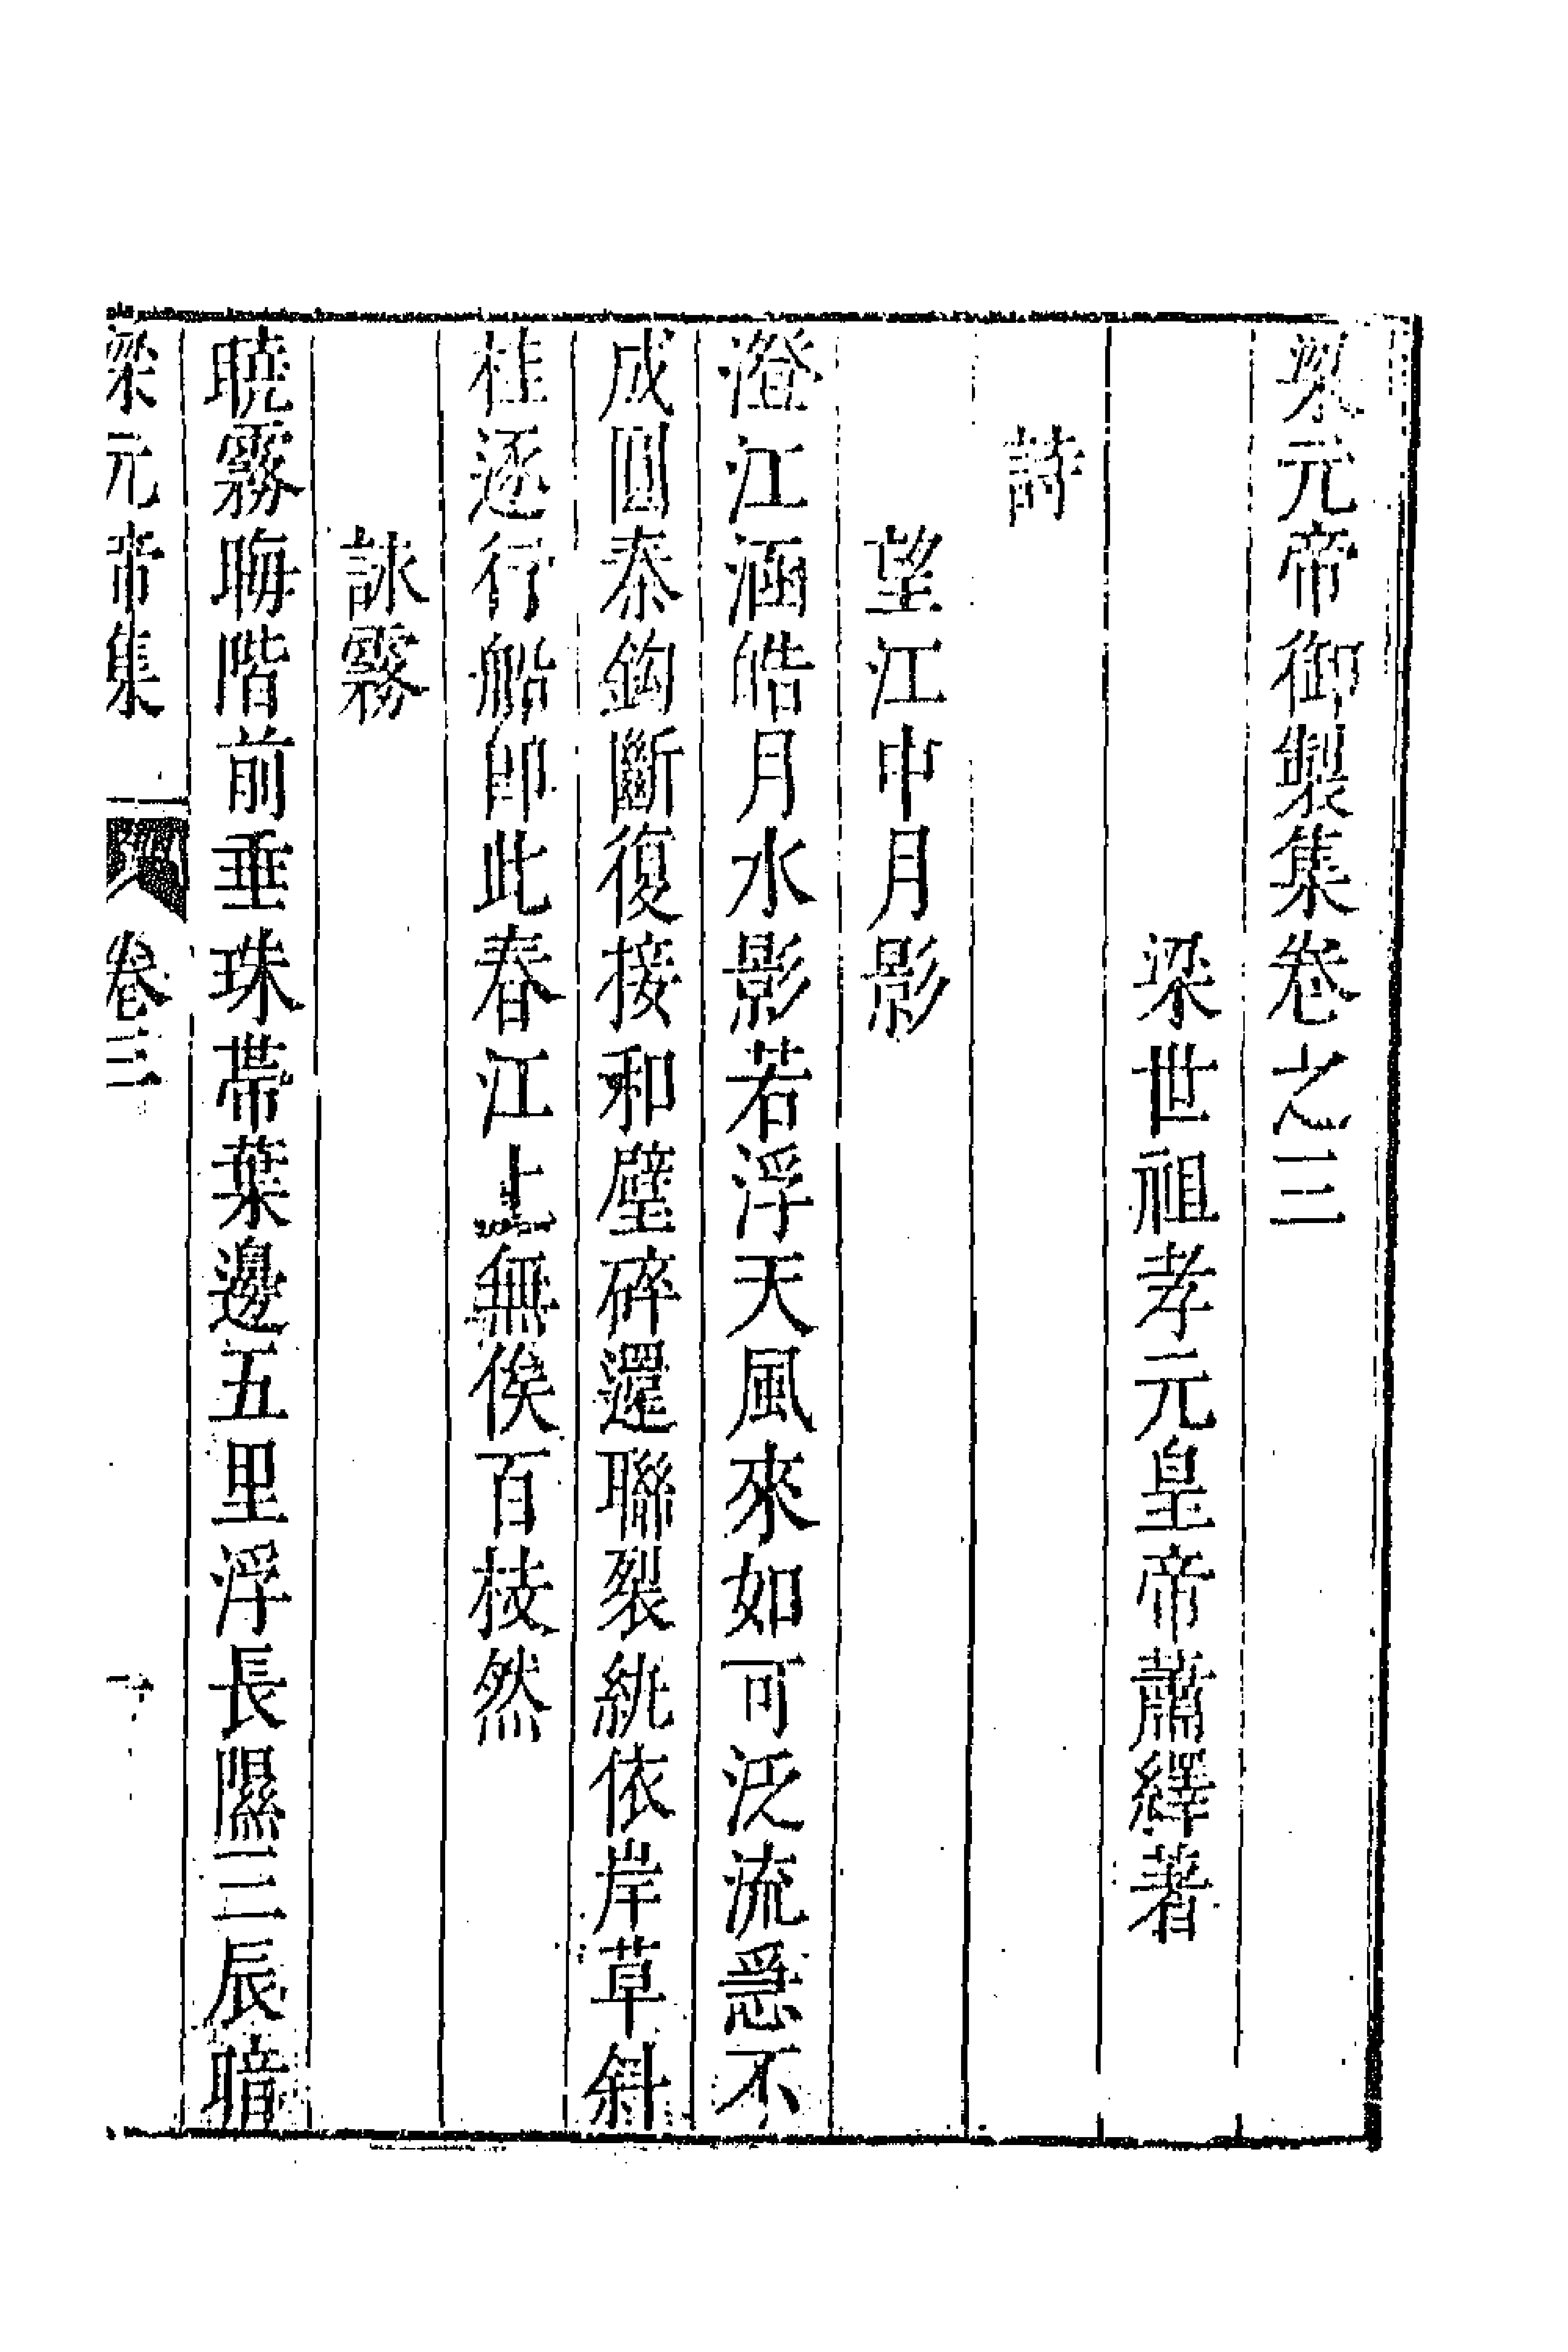 梁元帝御製集卷之三
梁世祖孝元皇帝蕭繹著
詩
望江中月影
澄江涵皓月水影若浮天風來如可泛流急不
成圓秦鈎斷復接和璧碎還聯裂紈依岸草斜
桂逐行船即此春江上無俟百枝然
詠霧
曉霧晦階前垂珠帶葉邊五里浮長隰三辰暗
梁元帝集
卷三